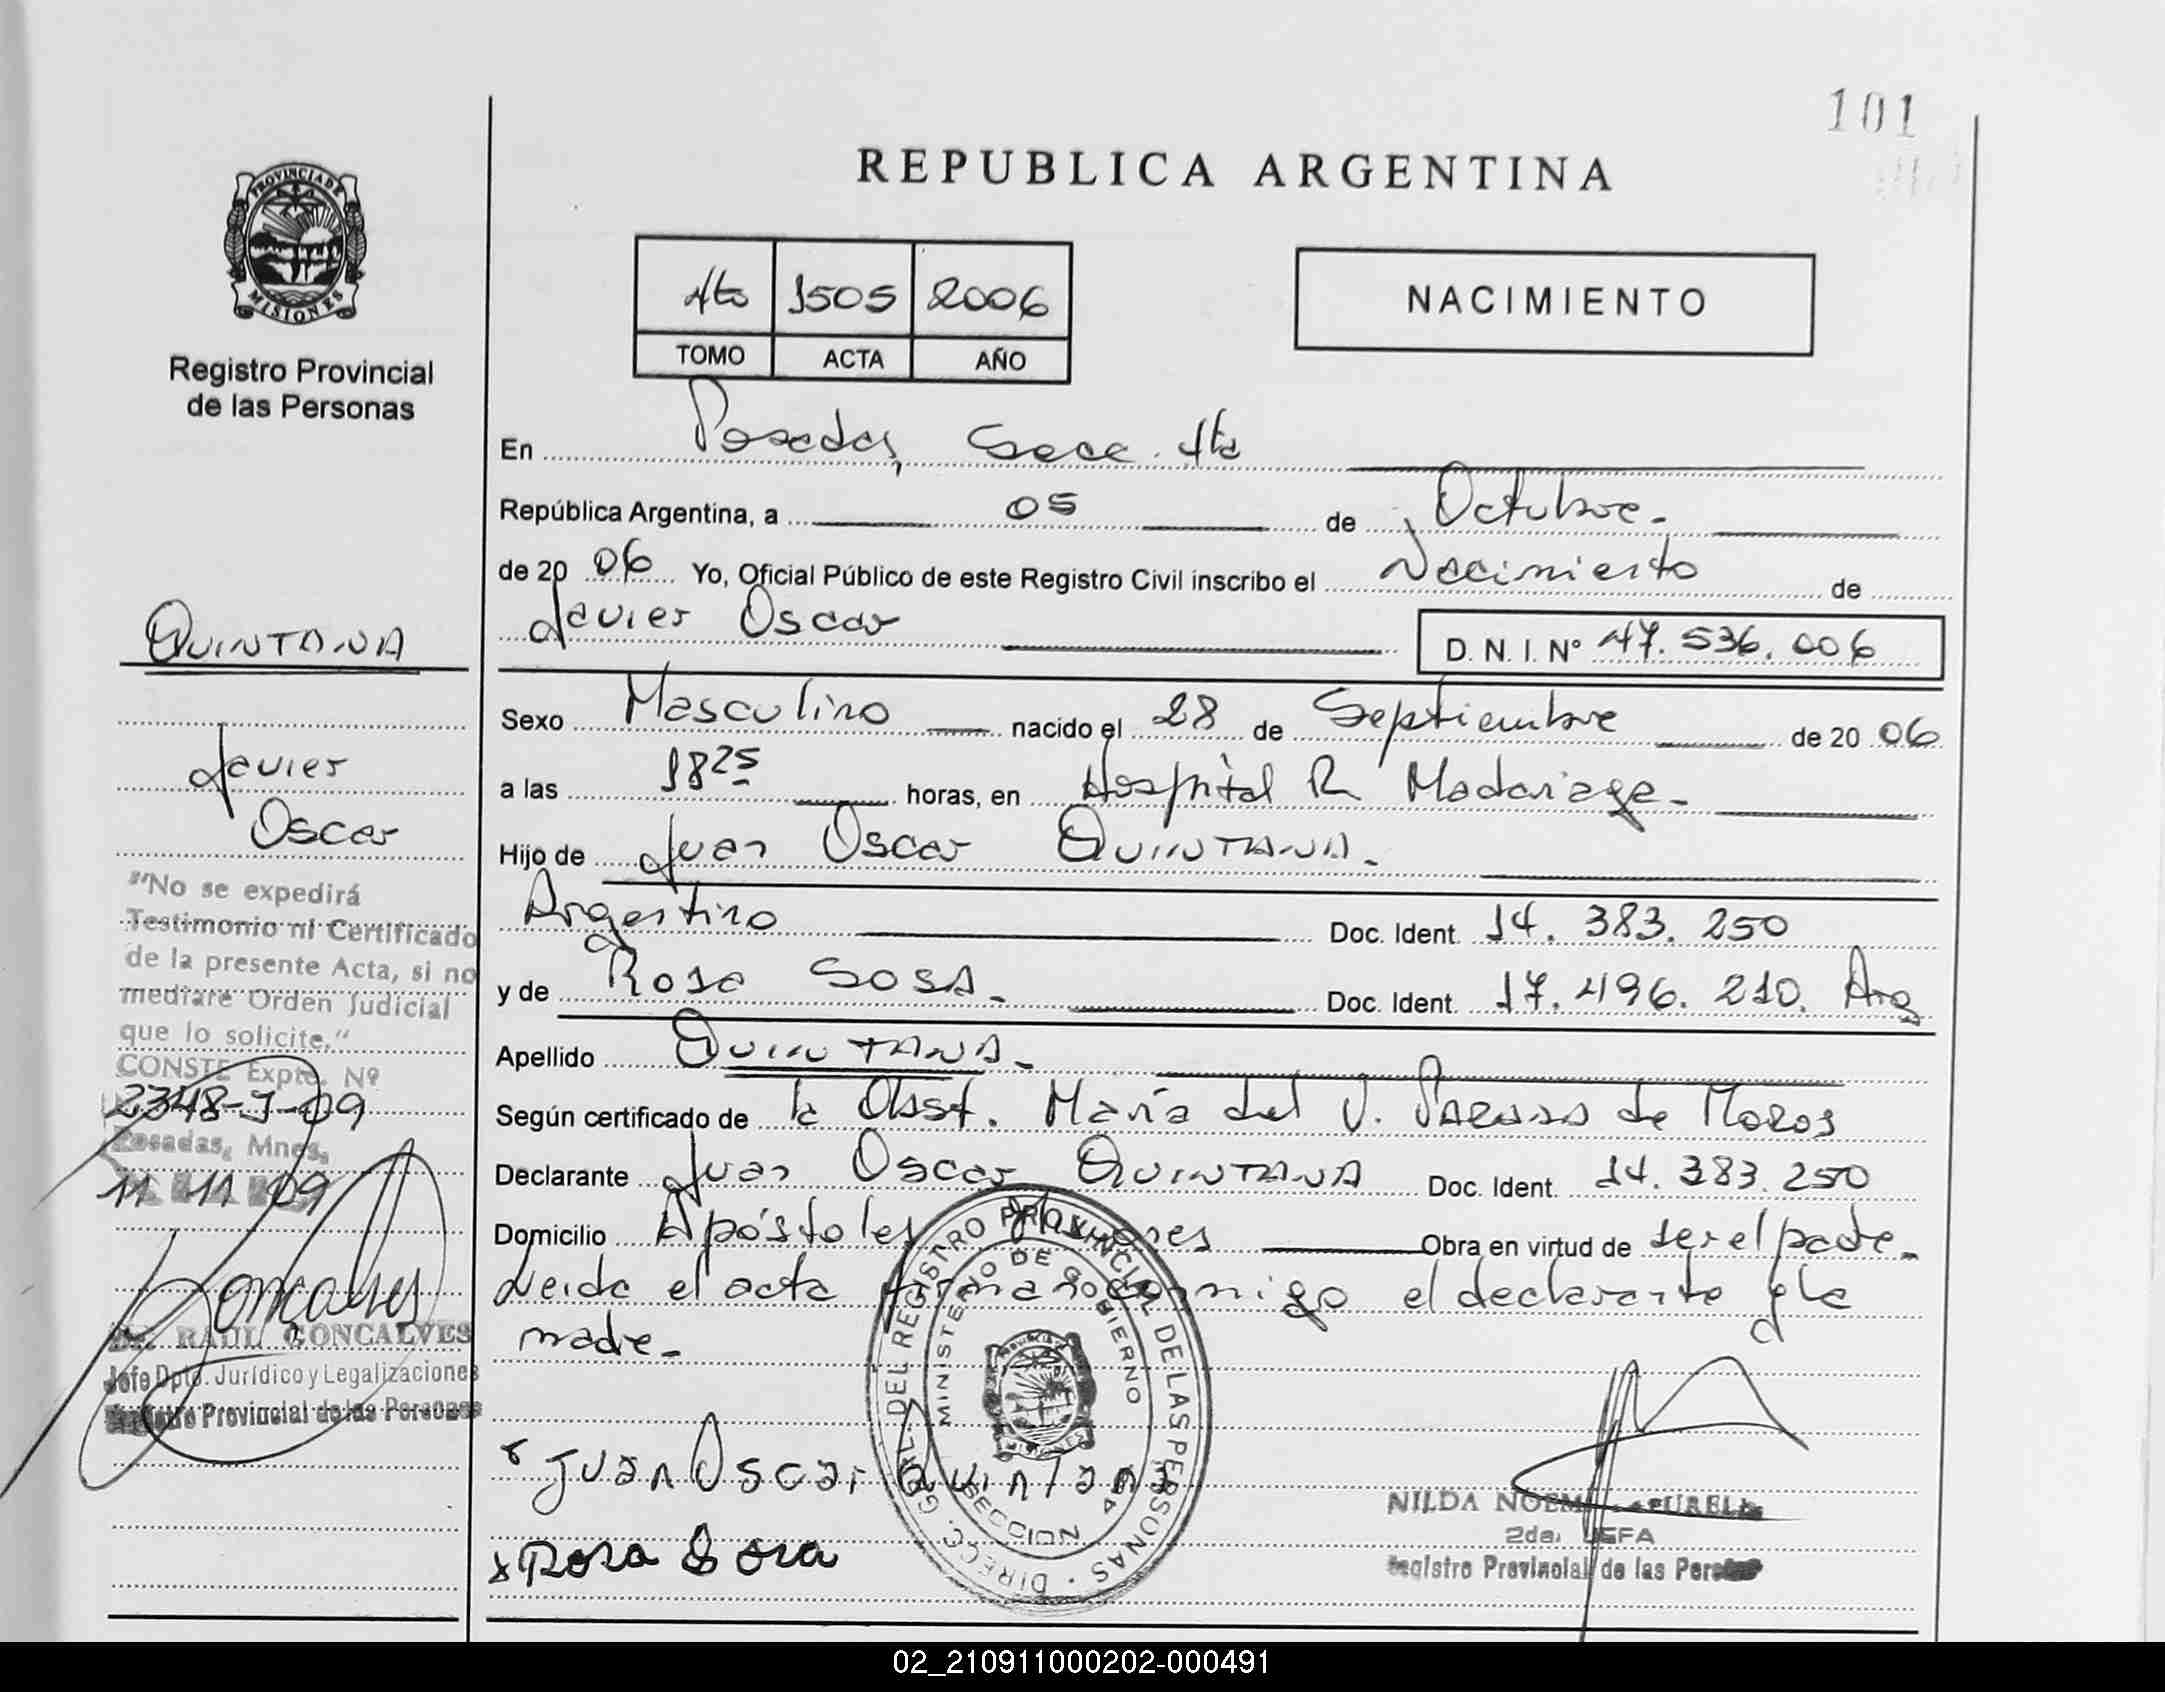 101
REPUBLICA ARGENTINA
PROVINCIA DE
MISIONES
Registro Provincial
de las Personas
4to 1505 2006
TOMO ACTA AÑO
NACIMIENTO
En Posadas, Secc. 4ta
República Argentina, a 05 de Octubre.-
de 2006 Yo, Oficial Público de este Registro Civil inscribo el Nacimiento de
Javier Oscar
D. N. I. Nº 47.536.006
Sexo Masculino nacido el 28 de Septiembre de 2006
a las 18 25 horas, en Hospital R. Madariaga.-
Hijo de Juan Oscar QUINTANA.-
Argentino Doc. Ident. 14.383.250
y de Rosa SOSA.- Doc. Ident. 17.496.210. Arg
Apellido QUINTANA.-
Según certificado de la Obst. María del V. de Moros
Declarante Juan Oscar QUINTANA Doc. Ident. 14.383.250
Domicilio Apóstoles Misiones Obra en virtud de ser el padre.-
Leida el acta firman conmigo el declarante y la
madre.-
Juan Oscar Quintana
x Rosa Sosa
DIRECC. GRAL. DEL REGISTRO PROVINCIAL DE LAS PERSONAS
MINISTERIO DE GOBIERNO
SECCION 4
NILDA
2da. JEFA
Registro Provincial de las Personas
QUINTANA
Javier
Oscar
"No se expedirá
Testimonio ni Certificado
de la presente Acta, si no
mediare Orden Judicial
que lo solicite."
CONSTE Expte. Nº
2348-J-09
Posadas, Mnes.
11 11 09
Goncalves
Dr. RAUL GONCALVES
Jefe Dpto. Jurídico y Legalizaciones
Registro Provincial de las Personas
02_210911000202-000491